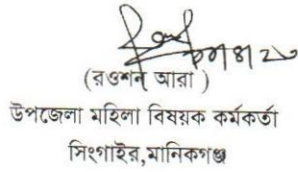 (রওশন আরা )
উপজেলা মহিলা বিষয়ক কর্মকর্তা
সিংগাইর,মানিকগঞ্জ